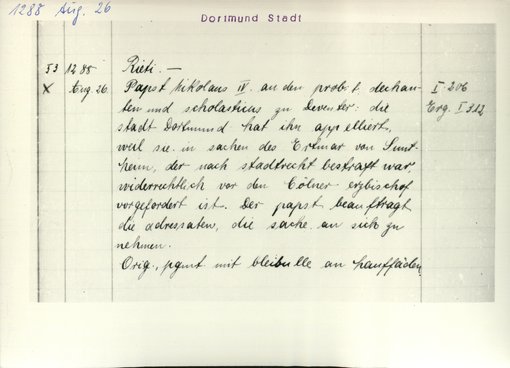 1288 Aug. 26
Dortmund Stadt
53 1288 Rieti. —
X Aug. 26. Papst Nikolaus IV. an den probst dechan- I 206
ten und scholasticus zu Deventer: die Erg. I 312
stadt Dortmund hat ihn appelliert,
weil sie in sachen des Ertmar von
der nach stadtrecht bestraft war,
widerrechtlich vor den Cölner erzbischof
vorgefordert ist. Der papst beauftragt
die adressaten, die sache an sich zu
nehmen.
Orig., pgmt. mit bleibulle an hanffäden